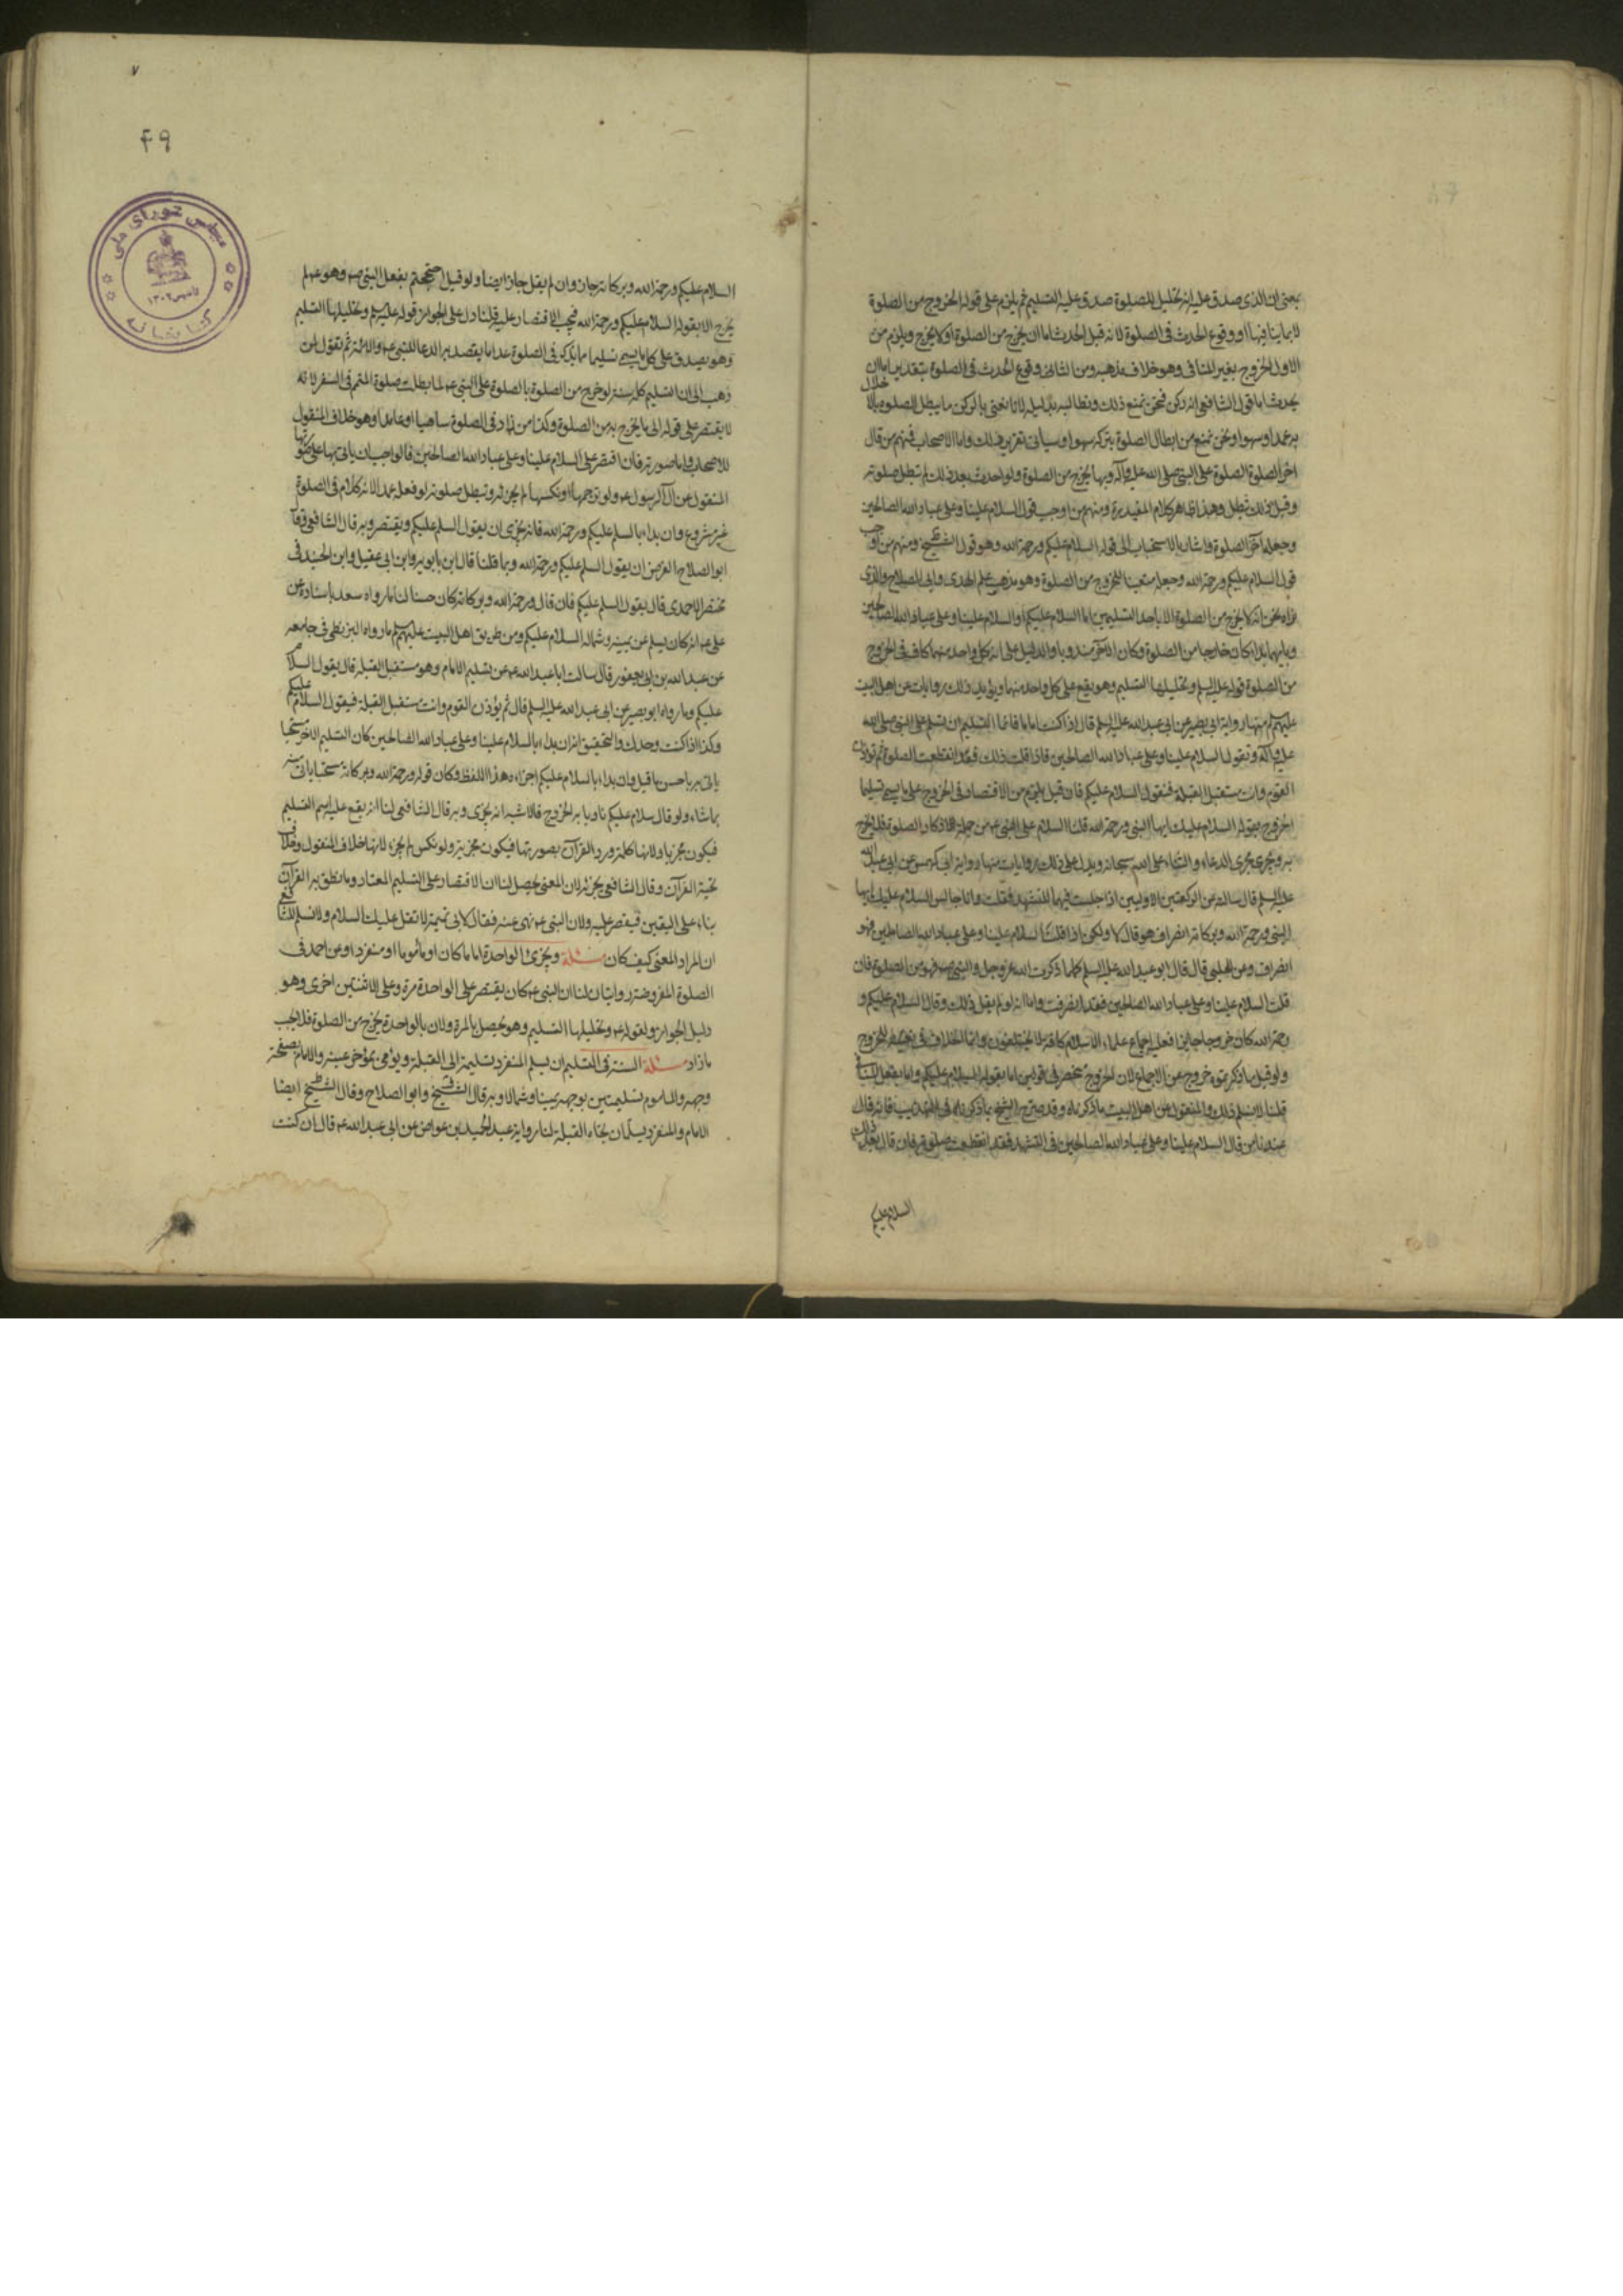 بمعنى ان الذى صدق عليه انه تحليل للصلوة صدق عليه التسليم ثم يلزم على قوله الخروج من الصلوة
لا بما ينافيها او وقوع الحدث فى الصلوة لانه قبل الحدث اما ان يخرج من الصلوة او لا يخرج ويلزم من
الاول الخروج بغير المنافى وهو خلاف مذهبه ومن الثانى وقوع الحدث فى الصلوة بتقدير اما ان
يحدث اما قول الشافعى انه ركن فنحن نمنع ذلك ونطالبه بدليله لانا نعنى بالركن ما يبطل الصلوه بالاخلال
به عمدا وسهوا ونحن نمنع من ابطال الصلوة بتركه سهوا وسياتى تقرير ذلك واما الاصحاب فمنهم من قال
اخر الصلوة الصلوة على النبى صلى الله عليه وآله وبها يخرج من الصلوة ولو احدث بعد ذلك لم تبطل صلوته
وقبل ذلك تبطل وهذا ظاهر كلام المفيد ره ومنهم من اوجب قول السلام علينا وعلى عباد الله الصالحين
وجعله آخر الصلوة واشار بالاستحباب الى قوله السلام عليكم ورحمة الله وهو قول الشيخ ومنهم من اوجب
قول السلام عليكم ورحمة الله وجعله متعينا للخروج من الصلوة وهو مذهب علم الهدى وابى الصلاح والذى
نراه نحن انه لا يخرج من الصلوة الا باحد التسليمين اما السلام عليكم او السلام علينا وعلى عباد الله الصالحين
وبايهما بدا كان خارجا من الصلوة وكان الآخر مندوبا والدليل على ان كل واحد منهما كاف فى الخروج
من الصلوة قوله عليه السلم وتحليلها التسليم وهو يقع على كل واحد منهما ويؤيد ذلك روايات عن اهل البيت
عليهم لم منها رواية ابى بصير عن ابى عبد الله عليه السلم قال اذا كنت اماما فانما التسليم ان تسلم على النبى صلى الله
عليه وآله وتقول السلام علينا وعلى عباد الله الصالحين فاذا قلت ذلك فقد انقطعت الصلوة ثم تؤذن
القوم وانت مستقبل القبلة فتقول السلام عليكم فان قيل يلزم من الاقتصار فى الخروج على ما يسمى تسليما
الخروج بقوله السلام عليك ايها النبى ورحمة الله قلنا السلام على النبى عم من جملة اذكار الصلوة فلا يخرج
به ويجرى مجرى الدعاء والثناء على الله سبحانه ويدل على ذلك روايات منها رواية ابى كهمس عن ابى عبد الله
عليه السلم قال سالته عن الركعتين الاوليين اذا جلست فيهما للتشهد فقلت وانا جالس السلام عليك ايها
النبى ورحمة الله وبركاته انصراف هو قال لا ولكن اذا قلت السلام علينا وعلى عباد الله الصالحين فهو
انصراف وعن الحلبى قال قال ابو عبد الله عليه السلم كلما ذكرت الله عز وجل والنبى صم فهو من الصلوة فان
قلت السلام علينا وعلى عباد الله الصالحين فقد انصرفت واما انه لو لم يقل ذلك وقال السلام عليكم و
رحمة الله كان خروجا جايزا فعليه اجماع علماء الاسلام كافة لا يختلفون وانما الخلاف فى تعينه للخروج
ولو قيل ما ذكرتموه خروج عن الاجماع لان الخروج منحصر فى قولين اما بقوله السلام عليكم واما بفعل المنافى
قلنا لا نسلم ذلك والمنقول عن اهل البيت ما ذكرناه وقد صرح الشيخ بما ذكرناه فى التهذيب فانه قال
عندنا من قال السلام علينا وعلى عباد الله الصالحين فى التشهد فقد انقطعت صلوته فان قال بعد ذلك
السلام عليكم
٤٩
السلام عليكم ورحمة الله وبركاته جاز وان لم يقل جاز ايضا ولو قيل احتججتم بفعل النبى صم وهو عم لم
يخرج الا بقوله السلام عليكم ورحمة الله فيجب الاقتصار عليه قلنا دل على الجواز قوله عليه السلم وتحليلها التسليم
وهو يصدق على كل ما يسمى تسليما مما يذكر فى الصلوة عدا ما يقصد به الدعا للنبى عم والائمة ثم نقول لمن
ذهب الى ان التسليم كله سنة لو خرج من الصلوة بالصلوة على النبى عم لما بطلت صلوة المتمم فى السفر لانه
لا يقتصر على قوله الى ما يخرج به من الصلوة وكذا من زاد فى الصلوة ساهيا او عامدا وهو خلاف المنقول
للاصحاب واما صورته فان اقتصر على السلام علينا وعلى عباد الله الصالحين قالواجب ان ياتى بها على صورتها
المنقول عن آل الرسول عم ولو ترجمها او نكسها لم يجزئه وتبطل صلوته لو فعله عمدا لانه كلام فى الصلوة
غير مشروع وان بداء بالسلم عليكم ورحمة الله فانه يجزى ان يقول السلم عليكم ويقتصر وبه قال الشافعى وقال
ابو الصلاح الفرض ان يقول السلم عليكم ورحمة الله وبما قلنا قال ابن بابويه وابن ابى عقيل وابن الجنيد فى
مختصر الاحمدى قال يقول السلم عليكم فان قال ورحمة الله وبركاته كان حسنا لنا ما رواه سعد باسناده عن
على عم انه كان يسلم عن يمينه وشماله السلام عليكم ومن طريق اهل البيت عليهم لم ما رواه البزنطى فى جامعه
عن عبد الله بن ابى يعفور قال سالت ابا عبد الله عم عن تسليم الامام وهو مستقبل القبله قال يقول السلام
عليكم وما رواه ابو بصير عن ابى عبد الله عليه السلم قال ثم يؤذن القوم وانت مستقبل القبلة فيقول السلام عليكم
وكذا اذا كنت وحدك والتحقيق انه ان بداء بالسلام علينا وعلى عباد الله الصالحين كان التسليم الاخر مستحبا
ياتى به باحسن ما قيل وان بداء بالسلام عليكم اجزاه هذا اللفظ وكان قوله ورحمة الله وبركاته مستحبا ياتى منه
بما شاء ولو قال سلام عليكم ناويا به الخروج فالاشبه انه يجزى وبه قال الشافعى لنا انه يقع عليه اسم التسليم
فيكون مجزيا ولانها كلمة ورد القرآن بصورتها فيكون مجزية ولو نكس لم يجز لانه خلاف المنقول وخلاف
تحية القرآن وقال الشافعى يجزئه لان المعنى يحصل لنا ان الاقتصار على التسليم المعتاد وما نطق به القرآن
بناء على اليقين فيقتصر عليه ولان النبى عم نهى عنه فقال لابى تميمة لا تقل عليك السلام ولا نسلم للشافعى
ان المراد المعنى كيف كان مسئلة ويجزئ الواحدة اماما كان او ماموما او منفردا وعن احمد فى
الصلوة المفروضة روايتان لنا ان النبى عم كان يقتصر على الواحدة مرة وعلى الاثنتين اخرى وهو
دليل الجواز ولقوله عم وتحليلها التسليم وهو يحصل بالمرة ولان بالواحدة يخرج من الصلوة فلا يجب
ما زاد مسئلة السنة فى التسليم ان يسلم المنفرد تسليمة الى القبلة ويؤمى بمؤخر عينه والامام بصفحة
وجهه والماموم تسليمتين بوجهه يمينا وشمالا وبه قال الشيخ وابو الصلاح وقال الشيخ ايضا
الامام والمنفرد يسلمان تجاه القبلة لنا رواية عبد الحميد بن عواض عن ابى عبد الله عم قال ان كنت
مجلس شوراى ملى
كتابخانه